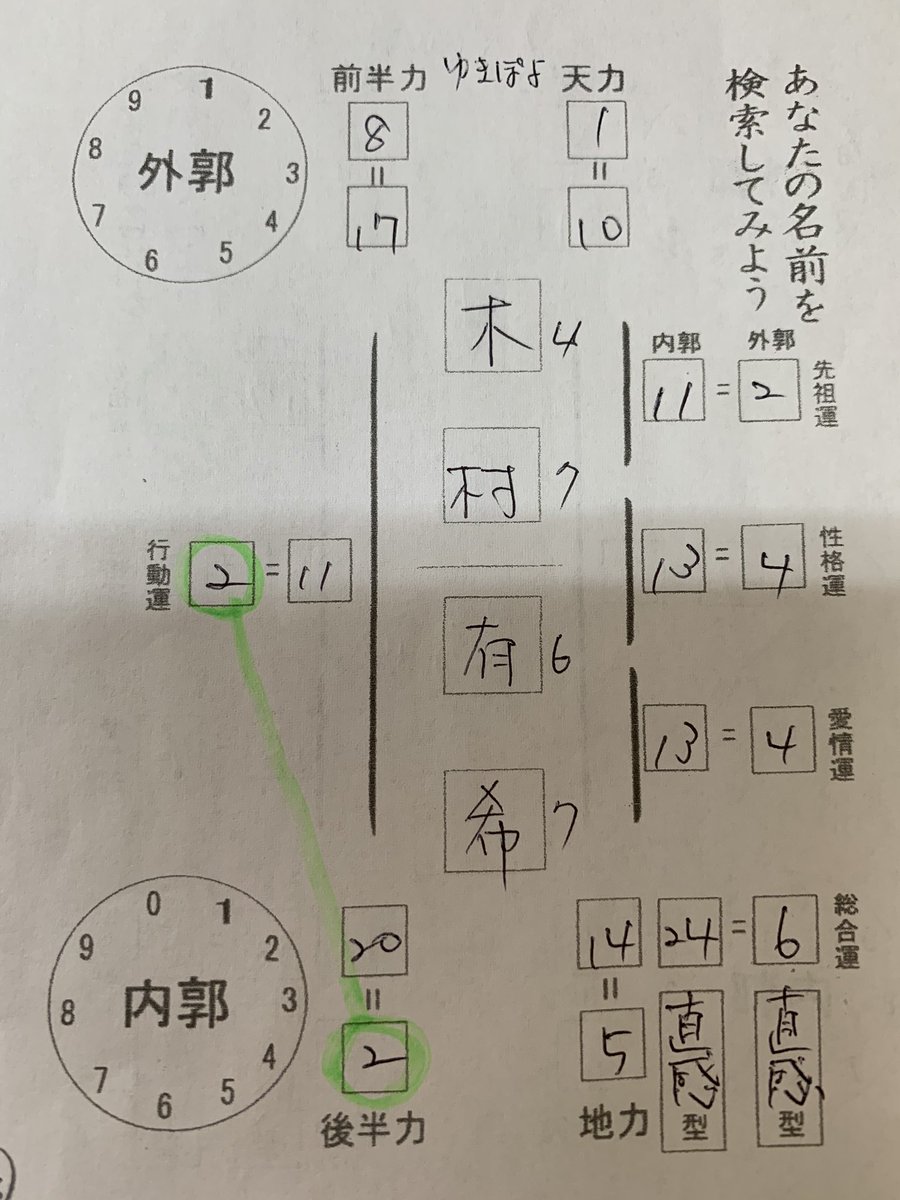 あなたの名前を
検索してみよう
ゆきぽよ
天力
1
=
10
前半力
8
=
17
外郭
1
2
3
4
5
6
7
8
9
木 4
村 7
有 6
希 7
内郭 外郭
11 = 2 先祖運
13 = 4 性格運
13 = 4 愛情運
行動運 2 = 11
14 24 = 6 総合運
=
5
地力
直感型 直感型
20
=
2
後半力
内郭
0
1
2
3
4
5
6
7
8
9